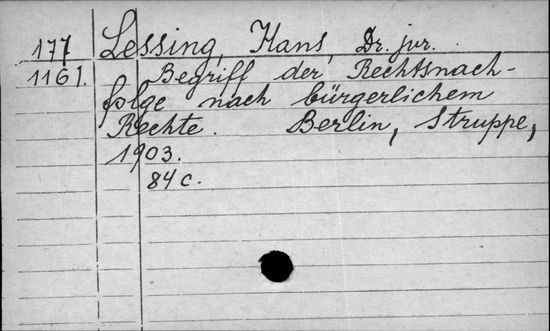 177 Lessing, Hans, Dr. jur.
1161. Begriff der Rechtsnach-
folge nach bürgerlichem
Rechte. Berlin, Struppe,
1903.
84 c.